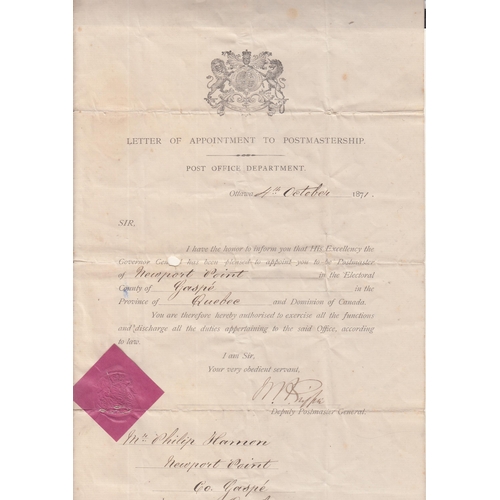 LETTER OF APPOINTMENT TO POSTMASTERSHIP.
POST OFFICE DEPARTMENT.
Ottawa 4th October 1871.
SIR,
I have the honor to inform you that His Excellency the
Governor Gen has been pleased to appoint you to be Postmaster
of Newport Point in the Electoral
County of Gaspé in the
Province of Quebec and Dominion of Canada.
You are therefore hereby authorised to exercise all the functions
and discharge all the duties appertaining to the said Office, according
to law.
I am Sir,
Your very obedient servant,
Deputy Postmaster General.
Mr Philip Hamon
Newport Point
Co. Gaspé